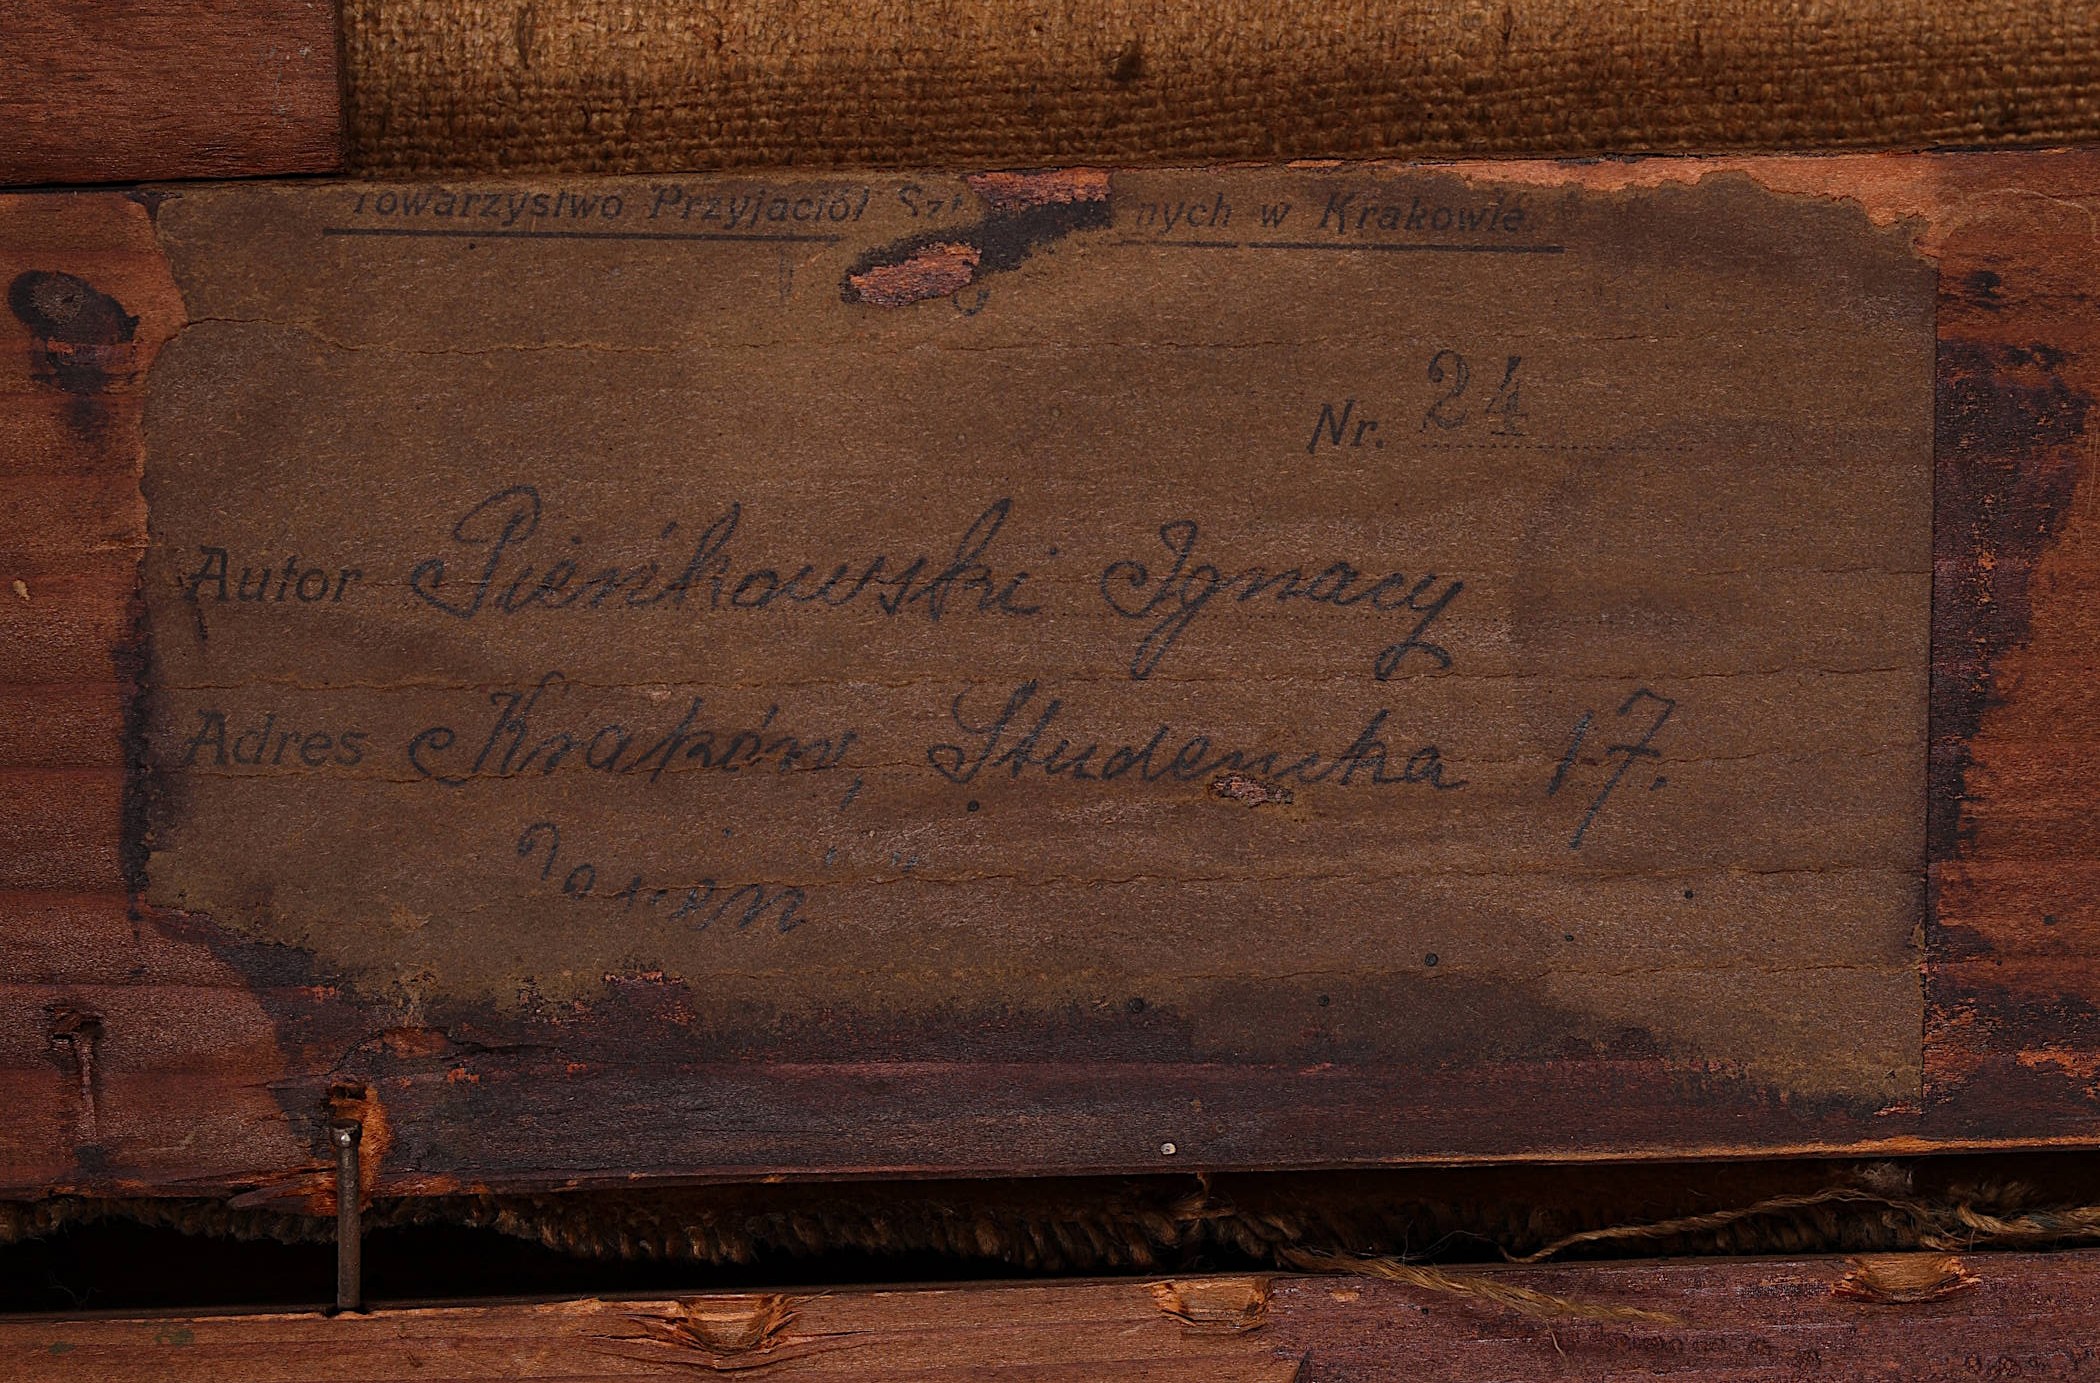 Towarzystwo Przyjaciół Szt nych w Krakowie.
Nr. 24
Autor Pieńkowski Ignacy
Adres Kraków, Studencka 17.